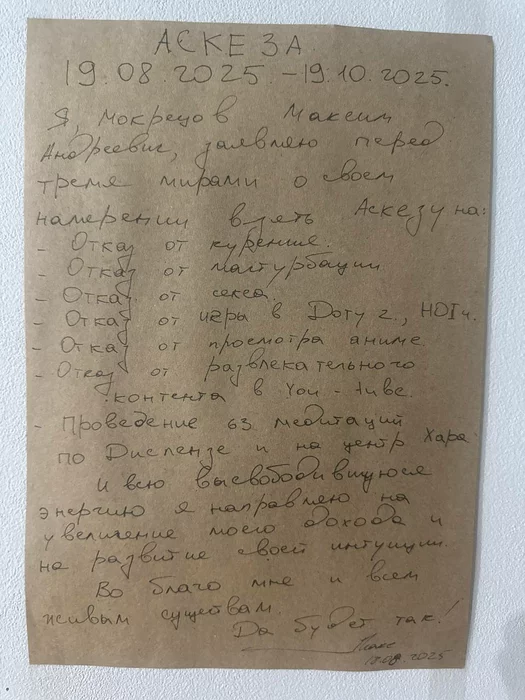 АСКЕЗА
19.08.2025.-19.10.2025.
Я, Мокрецов Максим
Андреевич, заявляю перед
тремя мирами о своем
намерении взять Аскезу на:
- Отказ от курения.
- Отказ от мастурбации
- Отказ от секса.
- Отказ от игры в Доту 2.,
- Отказ от просмотра аниме
- Отказ от развлекательного
контента в You-tube.
- Проведение 63 медитаций
по Диспензе и на центр Хара.
И всю высвободившуюся
энергию я направляю на
увеличение моего дохода и
на развитие своей интуиции.
Во благо мне и всем
живым существам.
Да будет так!
2025